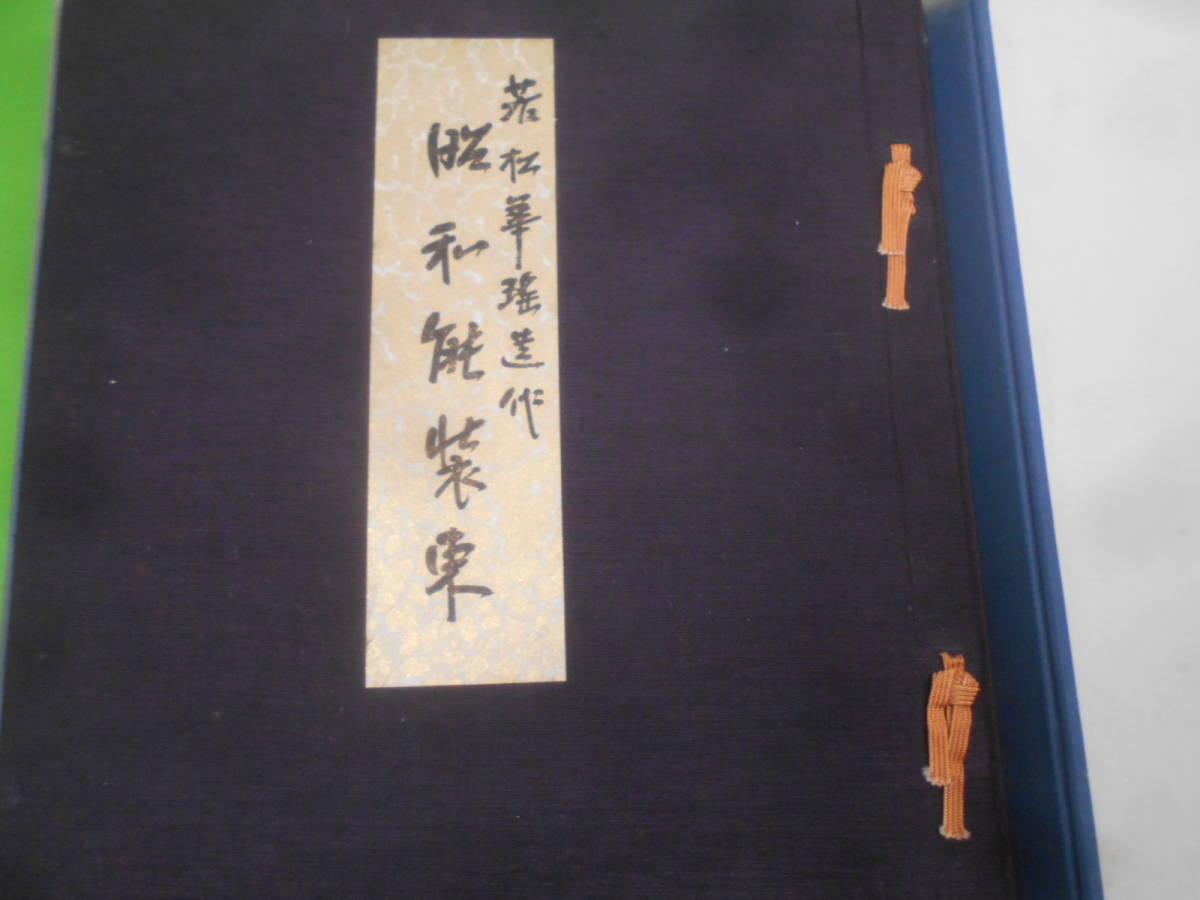 若松華瑶造作
昭和能装束